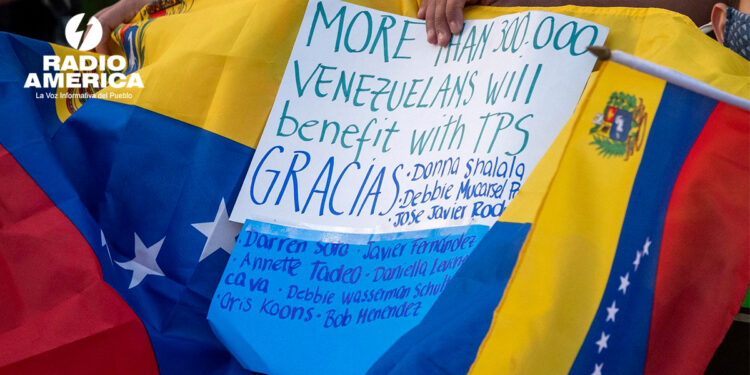 RADIO
AMERICA
La Voz Informativa del Pueblo
MORE THAN 300.000
VENEZUELANS WILL
benefit with TPS
GRACIAS
· Donna Shalala
· Debbie Mucarsel
· Jose Javier
· Darren Soto · Javier Fernández
· Annette Tadeo · Daniella Levine
cava · Debbie Wasserman
· Cris Koons · Bob Menendez